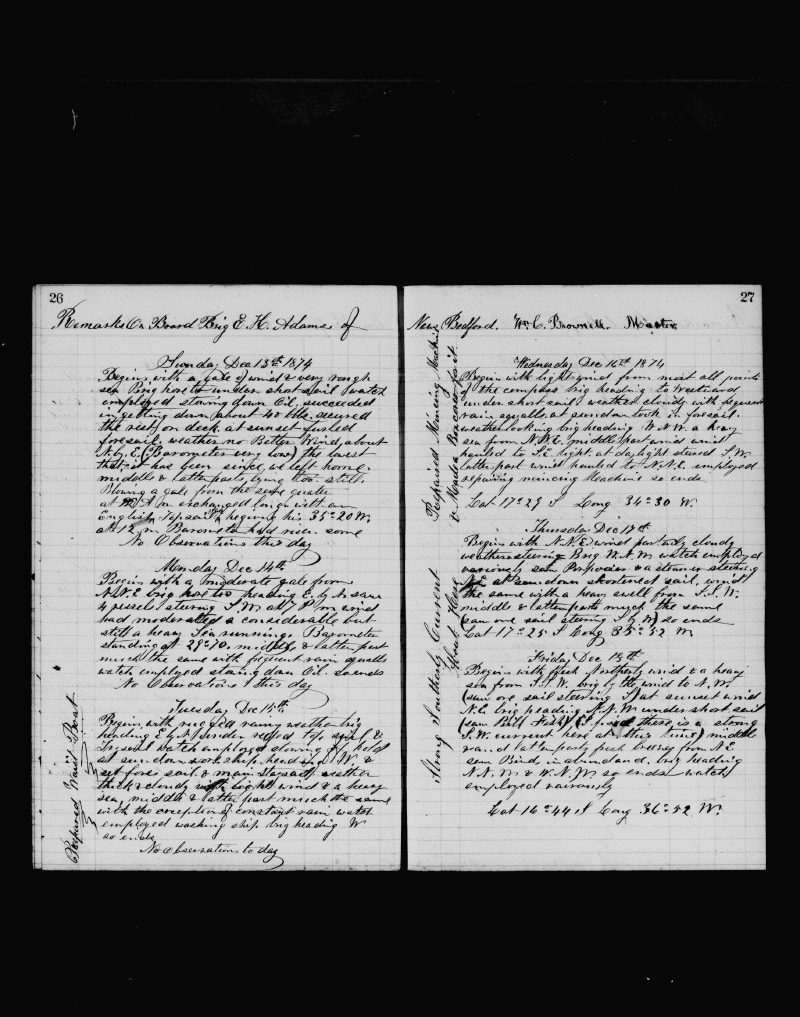 26
Remarks On Board Brig E. H. Adams of
Sunday Dec 13th 1874
Begins with a gale of wind & very rough
sea Brig hove to under short sail watch
employed stowing down Oil. succeeded
in getting down about 40 bbls. secured
the rest on deck at sunset furled
foresail. weather no Better Wind about
N. by E. (Barometer very low) the lowest
that it has been since we left home.
middle & latter parts lying too still.
Blowing a gale from the same quater
at A m exchanged longs with an
English Topsail his 35=20 W.
at 12 m Barometer had risen some
No Observations this day
Monday Dec 14th
Begins with a moderate gale from
N.N.E brig hove too heading E. by N. saw
4 vessels steering S.W. at 7 P m wind
had moderated considerable but
still a heavy Sea running. Barometer
standing at 29=70. middle & latter part
much the same with frequent rain squalls
watch employed stowing down Oil. So ends
No Observations this day
Tuesday Dec 15th
Begins with rugged rainy weather brig
heading E by N under reefed top sail &
Trysail watch employed stowing off hold
at sundown wore ship heading W &
set fore sail & main staysail weather
thick & cloudy with light wind & a heavy
sea, middle & latter part much the same
with the exception of constant rain watch
employed washing ship. brig heading W
so ends
No Observations to day
Repaired Waist Boat
27
New Bedford. Wm C. Brownell. Master
Wednesday Dec 16th 1874
Begins with light wind from most all points
of the compass brig heading to Westward
under short sail weather cloudy with frequent
rain squalls, at sundown took in foresail.
weather looking brig heading W.N.W. a heavy
sea from N.N.E. middle part wind wind
hauled to S.E. light. at daylight steered S.W.
latter part wind hauled to N.N.E. employed
repairing mincing Machine so ends
Lat 17=29 S Long 34=30 W.
Repaired Mincing Machine
Thursday Dec 17th
Begins with N.N.E wind partially cloudy
weather steering Brig W.N.W watch employed
variously saw Porpoises & a steamer steering
N.E at sundown shortened sail, wind
the same with a heavy swell from S.S.W.
middle & latter parts much the same
(saw one sail steering S by W) so ends
Lat 17=25 S Long 35=52 W
Strong Southerly Current
About Here
Friday Dec 18th
Begins with fresh Northerly wind & a heavy
sea from S.S.W. brig by the wind to N.W.
(saw one sail steering S) at sunset wind
N.E brig heading N.N.W under short sail
(saw Bill Fish) (I find there is a strong
S.W. current here at this time) middle
and latter parts fresh breeze from N.E
seen Birds in abundance. brig heading
N.N.W & W.N.W so ends watch
employed variously
Lat 16=44 S Long 36=52 W.